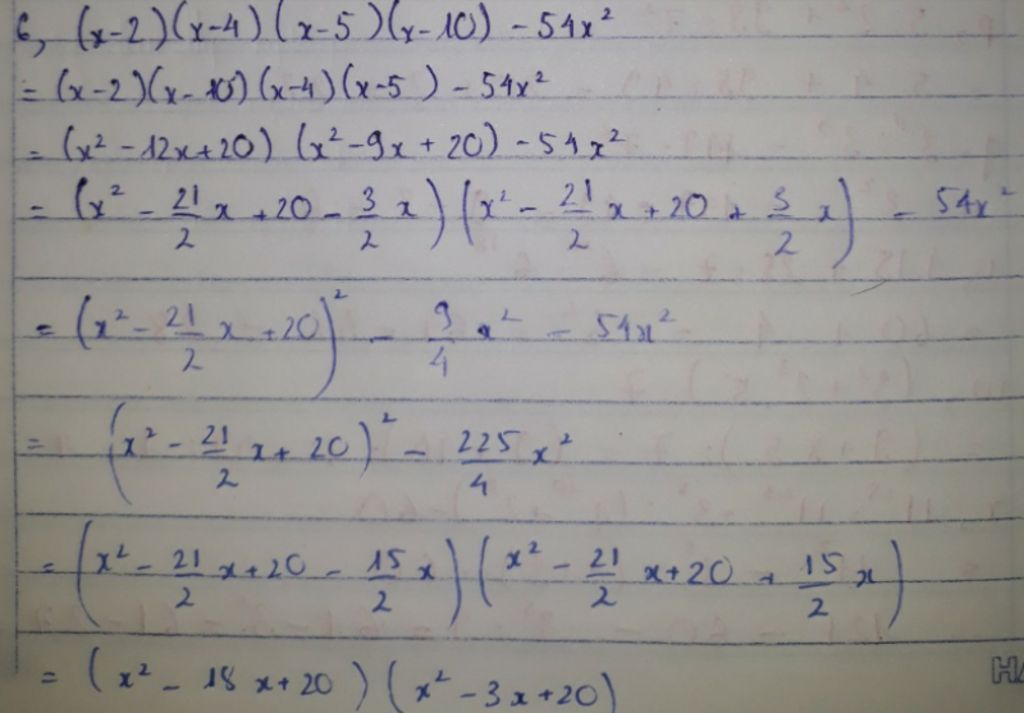 6, (x-2)(x-4)(x-5)(x-10) - 54x²
= (x-2)(x-10)(x-4)(x-5) - 54x²
= (x² - 12x+20) (x² - 9x + 20) - 54x²
= (x² - 21/2 x + 20 - 3/2 x) (x² - 21/2 x + 20 + 3/2 x) - 54x²
= (x² - 21/2 x + 20)² - 9/4 x² - 54x²
= (x² - 21/2 x + 20)² - 225/4 x²
= (x² - 21/2 x + 20 - 15/2 x) (x² - 21/2 x + 20 + 15/2 x)
= (x² - 18x+20) (x² - 3x+20)